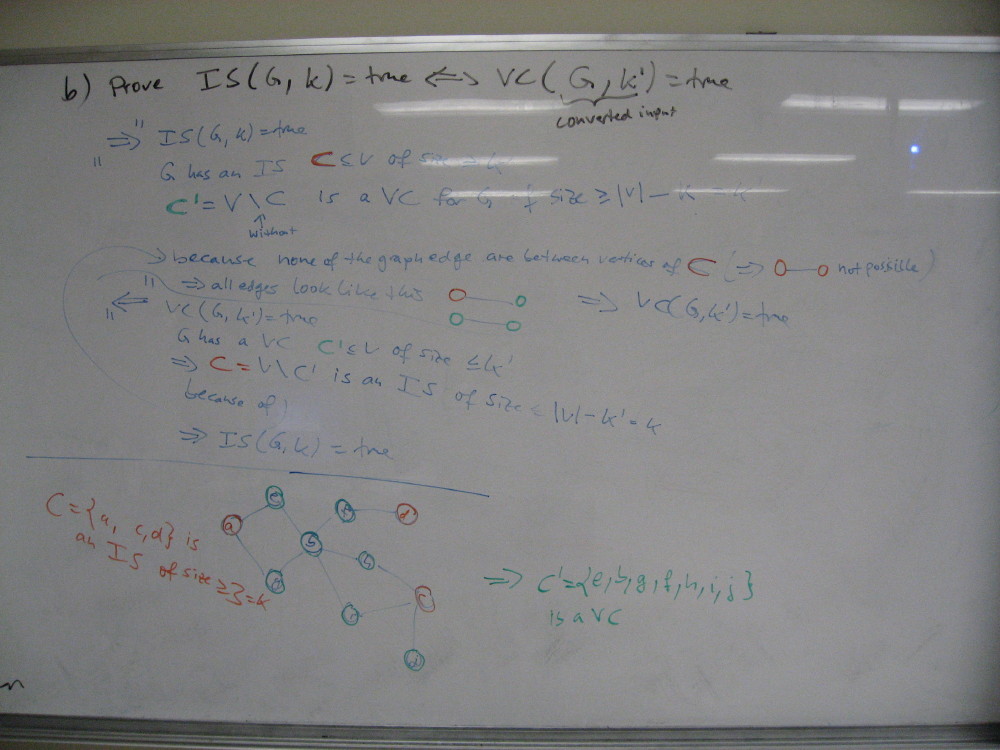 b) Prove IS(G, k) = true ⇔ VC(G, k') = true
converted input
"⇒" IS(G, k) = true
G has an IS C ⊆ V of size ≥ k
C' = V \ C is a VC for G of size ≥ |V| - k = k'
without
→ because none of the graph edge are between vertices of C (⇒ O—O not possible)
⇒ all edges look like this
⇒ VC(G, k') = true
"⇐" VC(G, k') = true
G has a VC C' ⊆ V of size ≤ k'
⇒ C = V \ C' is an IS of size ≤ |V| - k' = k
because of
⇒ IS(G, k) = true
C = {a, c, d} is
an IS
of size ≥ 3 = k
e
a
b
d
c
⇒ C' = {e, b, g, f, h, i, j}
is a VC